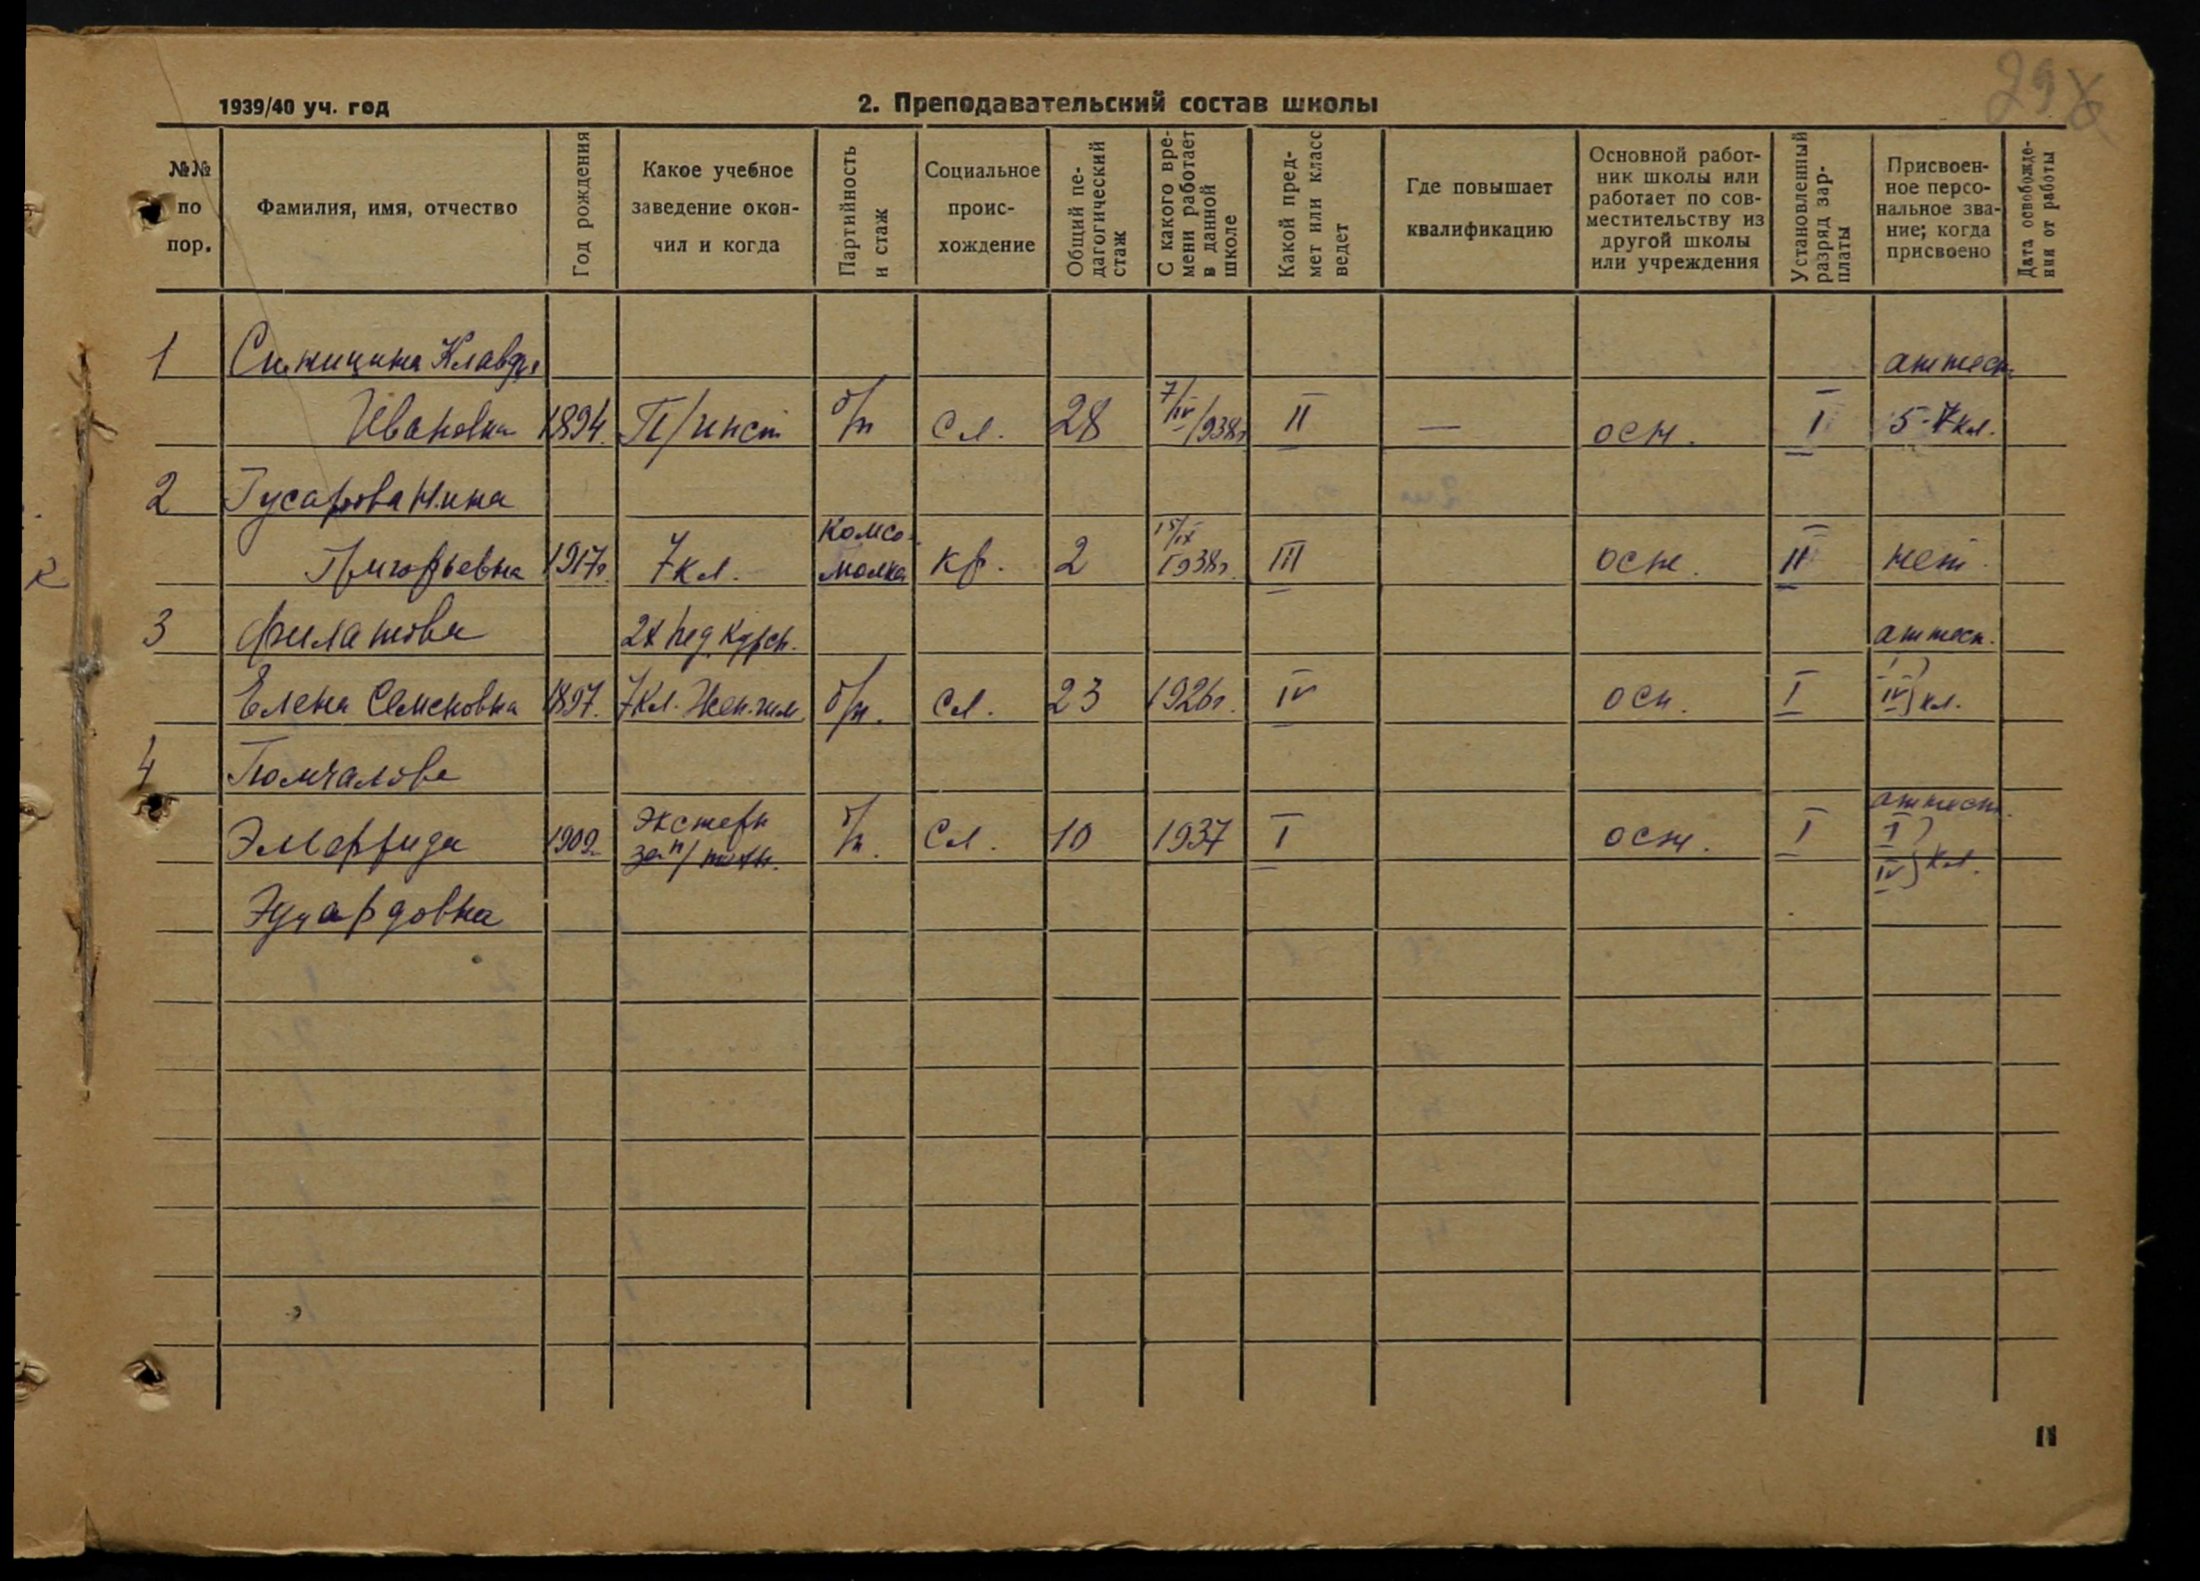 298
1939/40 уч. год
2. Преподавательский состав школы
№№
по
пор.
Фамилия, имя, отчество
Год рождения
Какое учебное
заведение окон-
чил и когда
Партийность
и стаж
Социальное
проис-
хождение
Общий пе-
дагогический
стаж
С какого вре-
мени работает
в данной
школе
Какой пред-
мет или класс
ведет
Где повышает
квалификацию
Основной работ-
ник школы или
работает по сов-
местительству из
другой школы
или учреждения
Установленный
разряд зар-
платы
Присвоен-
ное персо-
нальное зва-
ние; когда
присвоено
Дата освобожде-
ния от работы
1 Синицина Клавдия аттест.
Ивановна 1894 П/инст б/п сл. 28 7/IV/1938г II — осн. I 5-7 кл.
2 Гусарова Нина
Григорьевна 1917г. 7 кл. Комсо-
молка кр. 2 15/IX
1938г. III осн. II нет.
3 Филатова 2х пед. курсы. аттест.
Елена Семеновна 1897. 7 кл. Жен. гим. б/п. сл. 23 1926г. IV осн. I I
IV } кл.
4
Эльфрида 1909 экстерн
за п/техн. б/п. сл. 10 1937 I осн. I аттест.
I
IV } кл.
Эдуардовна
11